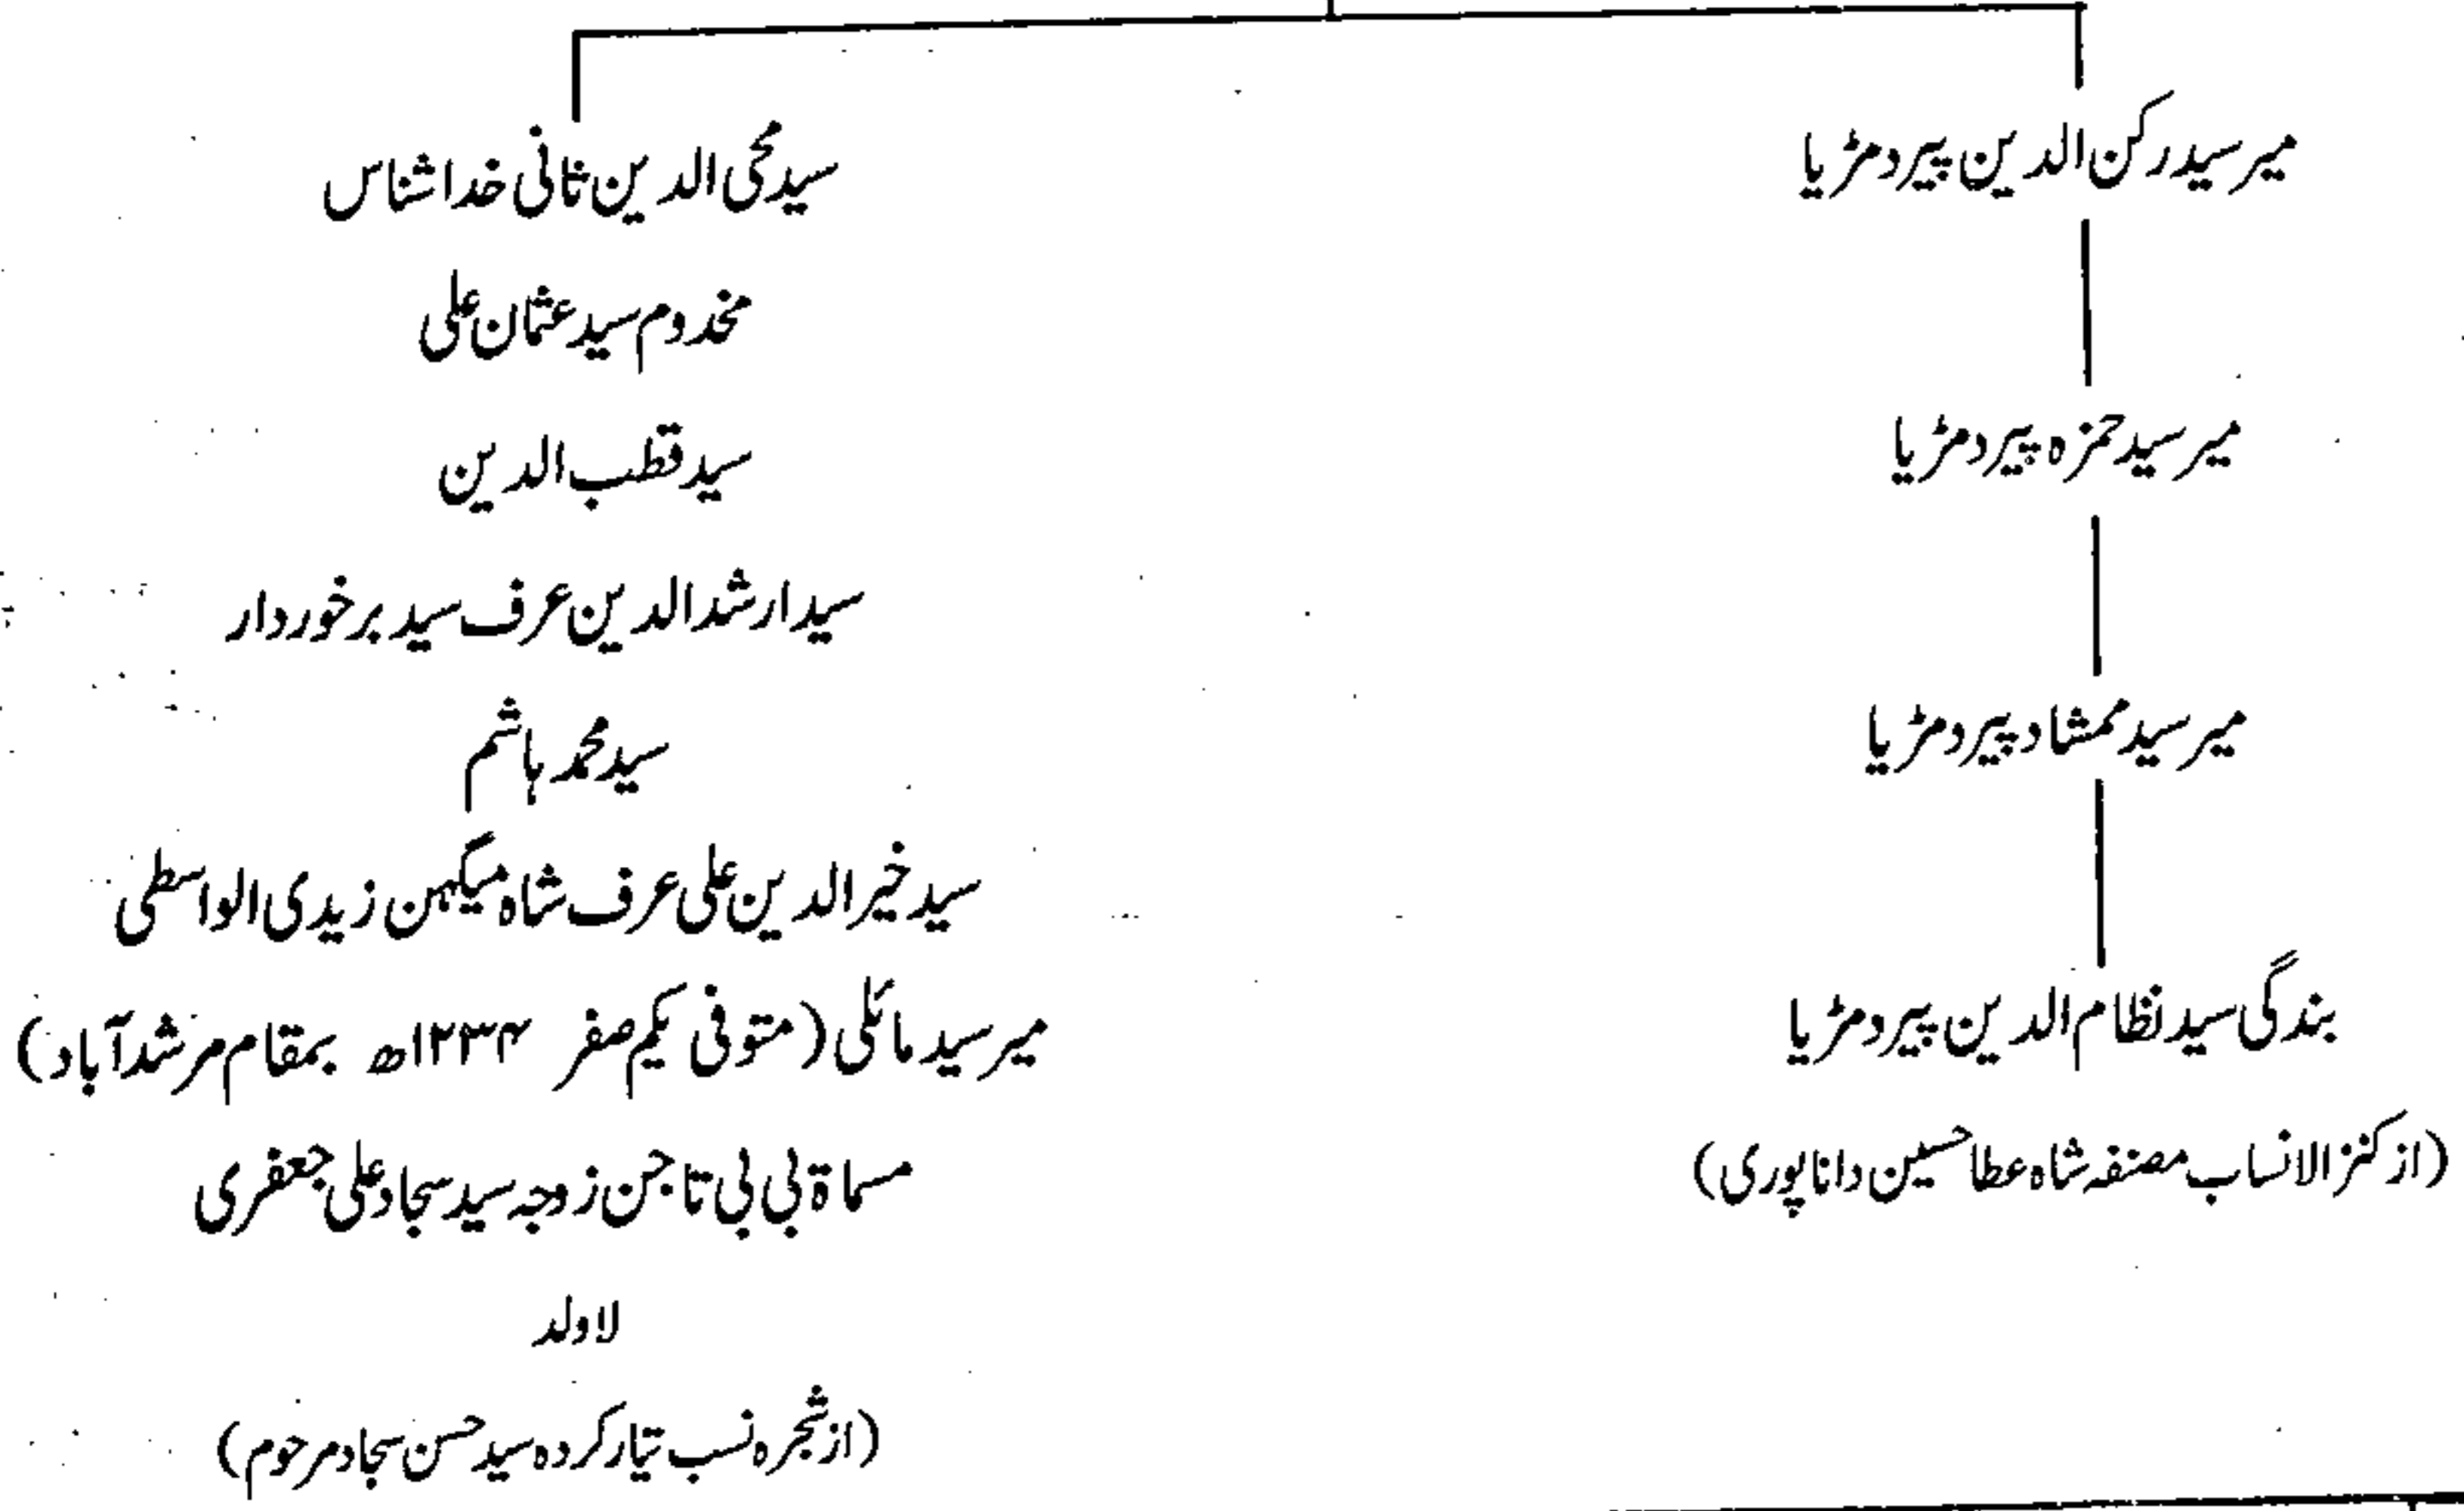 میر سید رکن الدین پیر دمڑیا
میر سید حمزہ پیر دمڑیا
میر سید ممشاد پیر دمڑیا
بندگی سید نظام الدین پیر دمڑیا
(از کنز الانساب مصنفہ شاہ عطا حسین داناپوری)
سید محی الدین ثانی خدا شناس
مخدوم سید عثمان علی
سید قطب الدین
سید ارشد الدین عرف سید برخوردار
سید محمد ہاشم
سید خیر الدین علی عرف شاہ میگہن زیدی الواسطی
میر سید مائلی (متوفی یکم صفر ۱۲۳۴ھ بمقام مرشد آباد)
مسماۃ بی بی تاجن زوجہ سید سجاد علی جعفری
لا ولد
(از شجرہ نسب تیار کردہ سید حسن سجاد مرحوم)